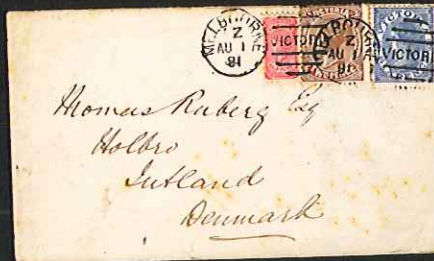 MELBOURNE
Z
AU 1
81
VICTORIA
Z
AU 1
81
VICTORIA
Thomas Ruberg Esq
Holbro
Jutland
Denmark